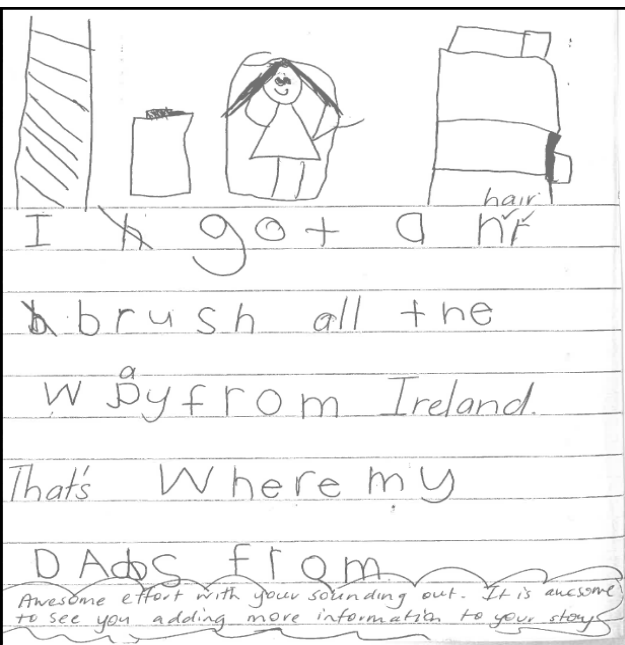 hair
I got a hr
brush all the
way from Ireland.
That's Where my
DAds from
Awesome effort with your sounding out. It is awesome
to see you adding more information to your storys